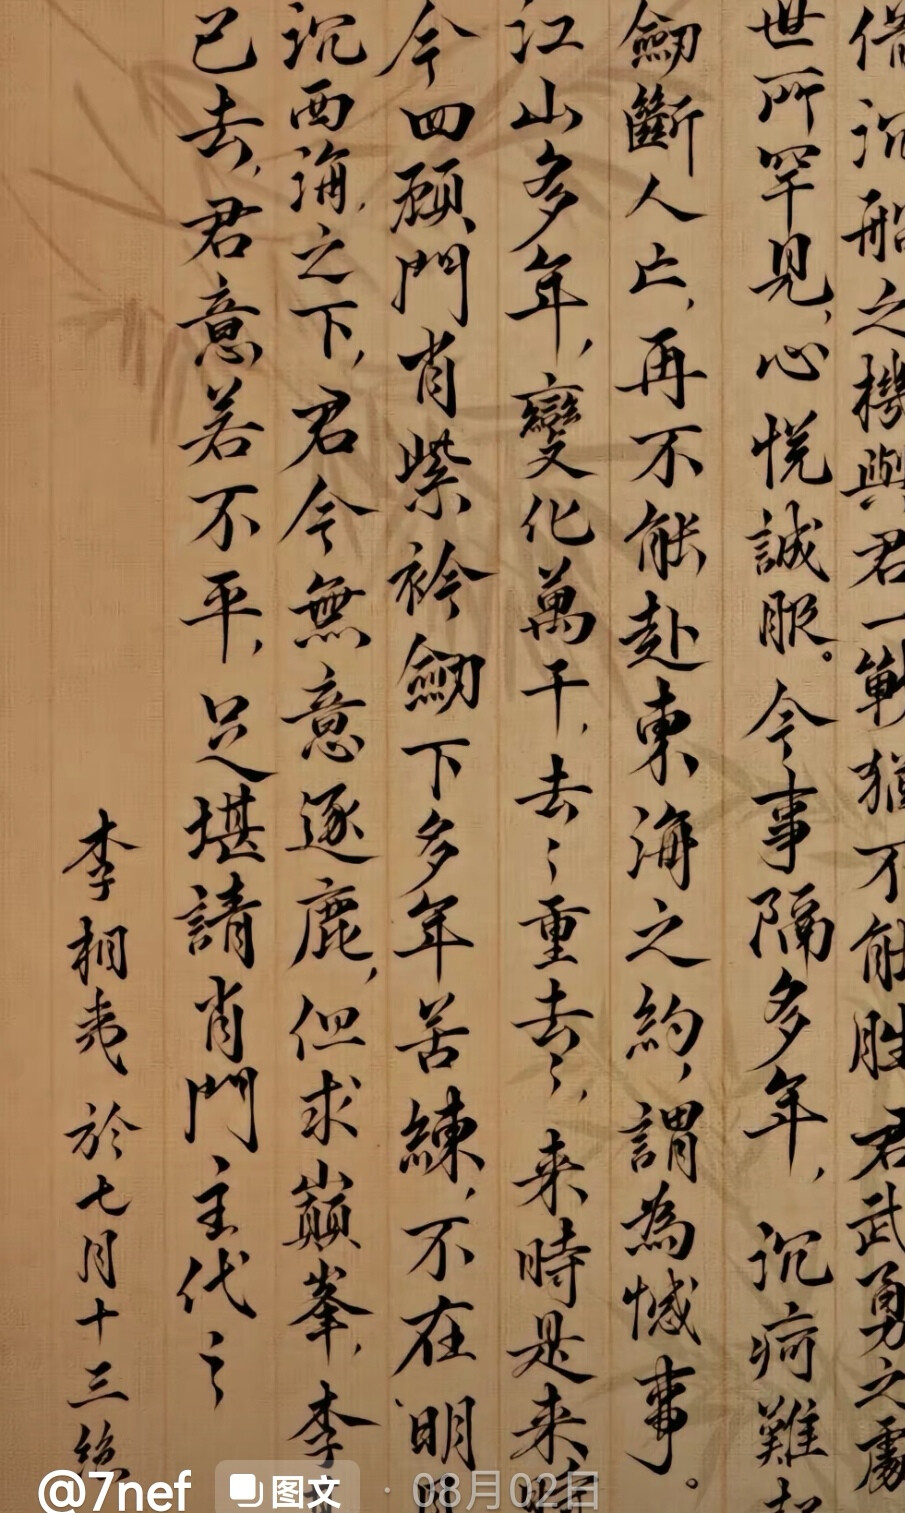 借沉船之機與君一戰猶不能勝君武勇之處
世所罕見，心悅誠服。今事隔多年，沉疴難起
劒斷人亡，再不能赴東海之約，謂為憾事。
江山多年，變化萬千，去〻重去〻，来時是来時
今四顧門肖紫衿劒下多年苦練，不在明月
沉西海之下，君今無意逐鹿，但求巔峯，李
已去，君意若不平，足堪請肖門主代〻
李相夷於七月十三絶
@7nef 图文 · 08月02日